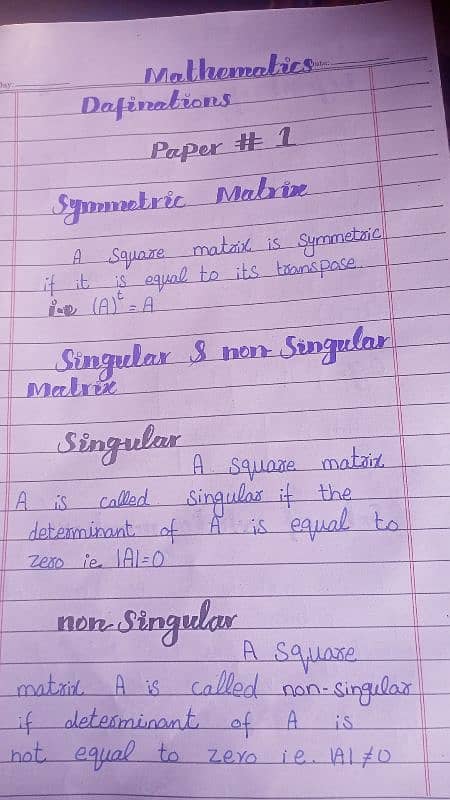 Day:
Date:
Mathematics
Dafinations
Paper # 1
Symmetric Matrix
A Square matrix is Symmetric
if it is equal to its transpose.
i.e (A)ᵗ = A
Singular & non Singular
Matrix
Singular
A square matrix
A is called singular if the
determinant of A is equal to
zero ie |A|=0
non-Singular
A square
matrix A is called non-singular
if determinant of A is
not equal to zero i.e. |A| ≠0